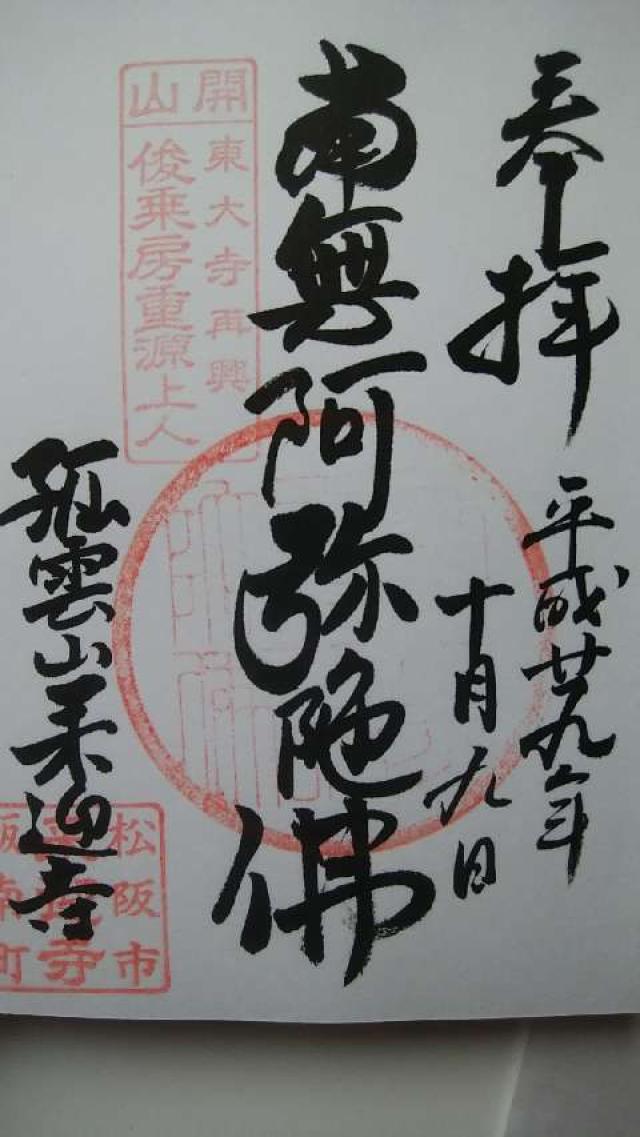 奉拝
平成廿九年
十月九日
南無阿弥陀佛
開山
東大寺再興
俊乗房重源上人
孤雲山来迎寺
松阪市
寺
町